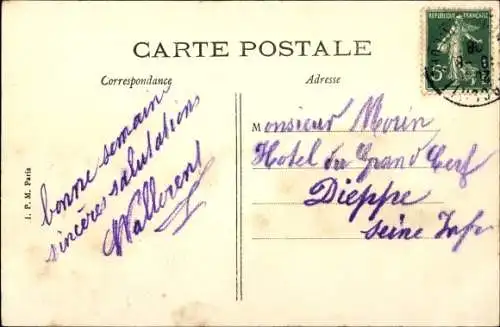 RÉPUBLIQUE FRANÇAISE
5c
CARTE POSTALE
Correspondance
Adresse
bonne semaine
sincères salutations
Walleren
Monsieur Morin
Hotel du Grand Cerf
Dieppe
Seine Infr
I. P. M. Paris